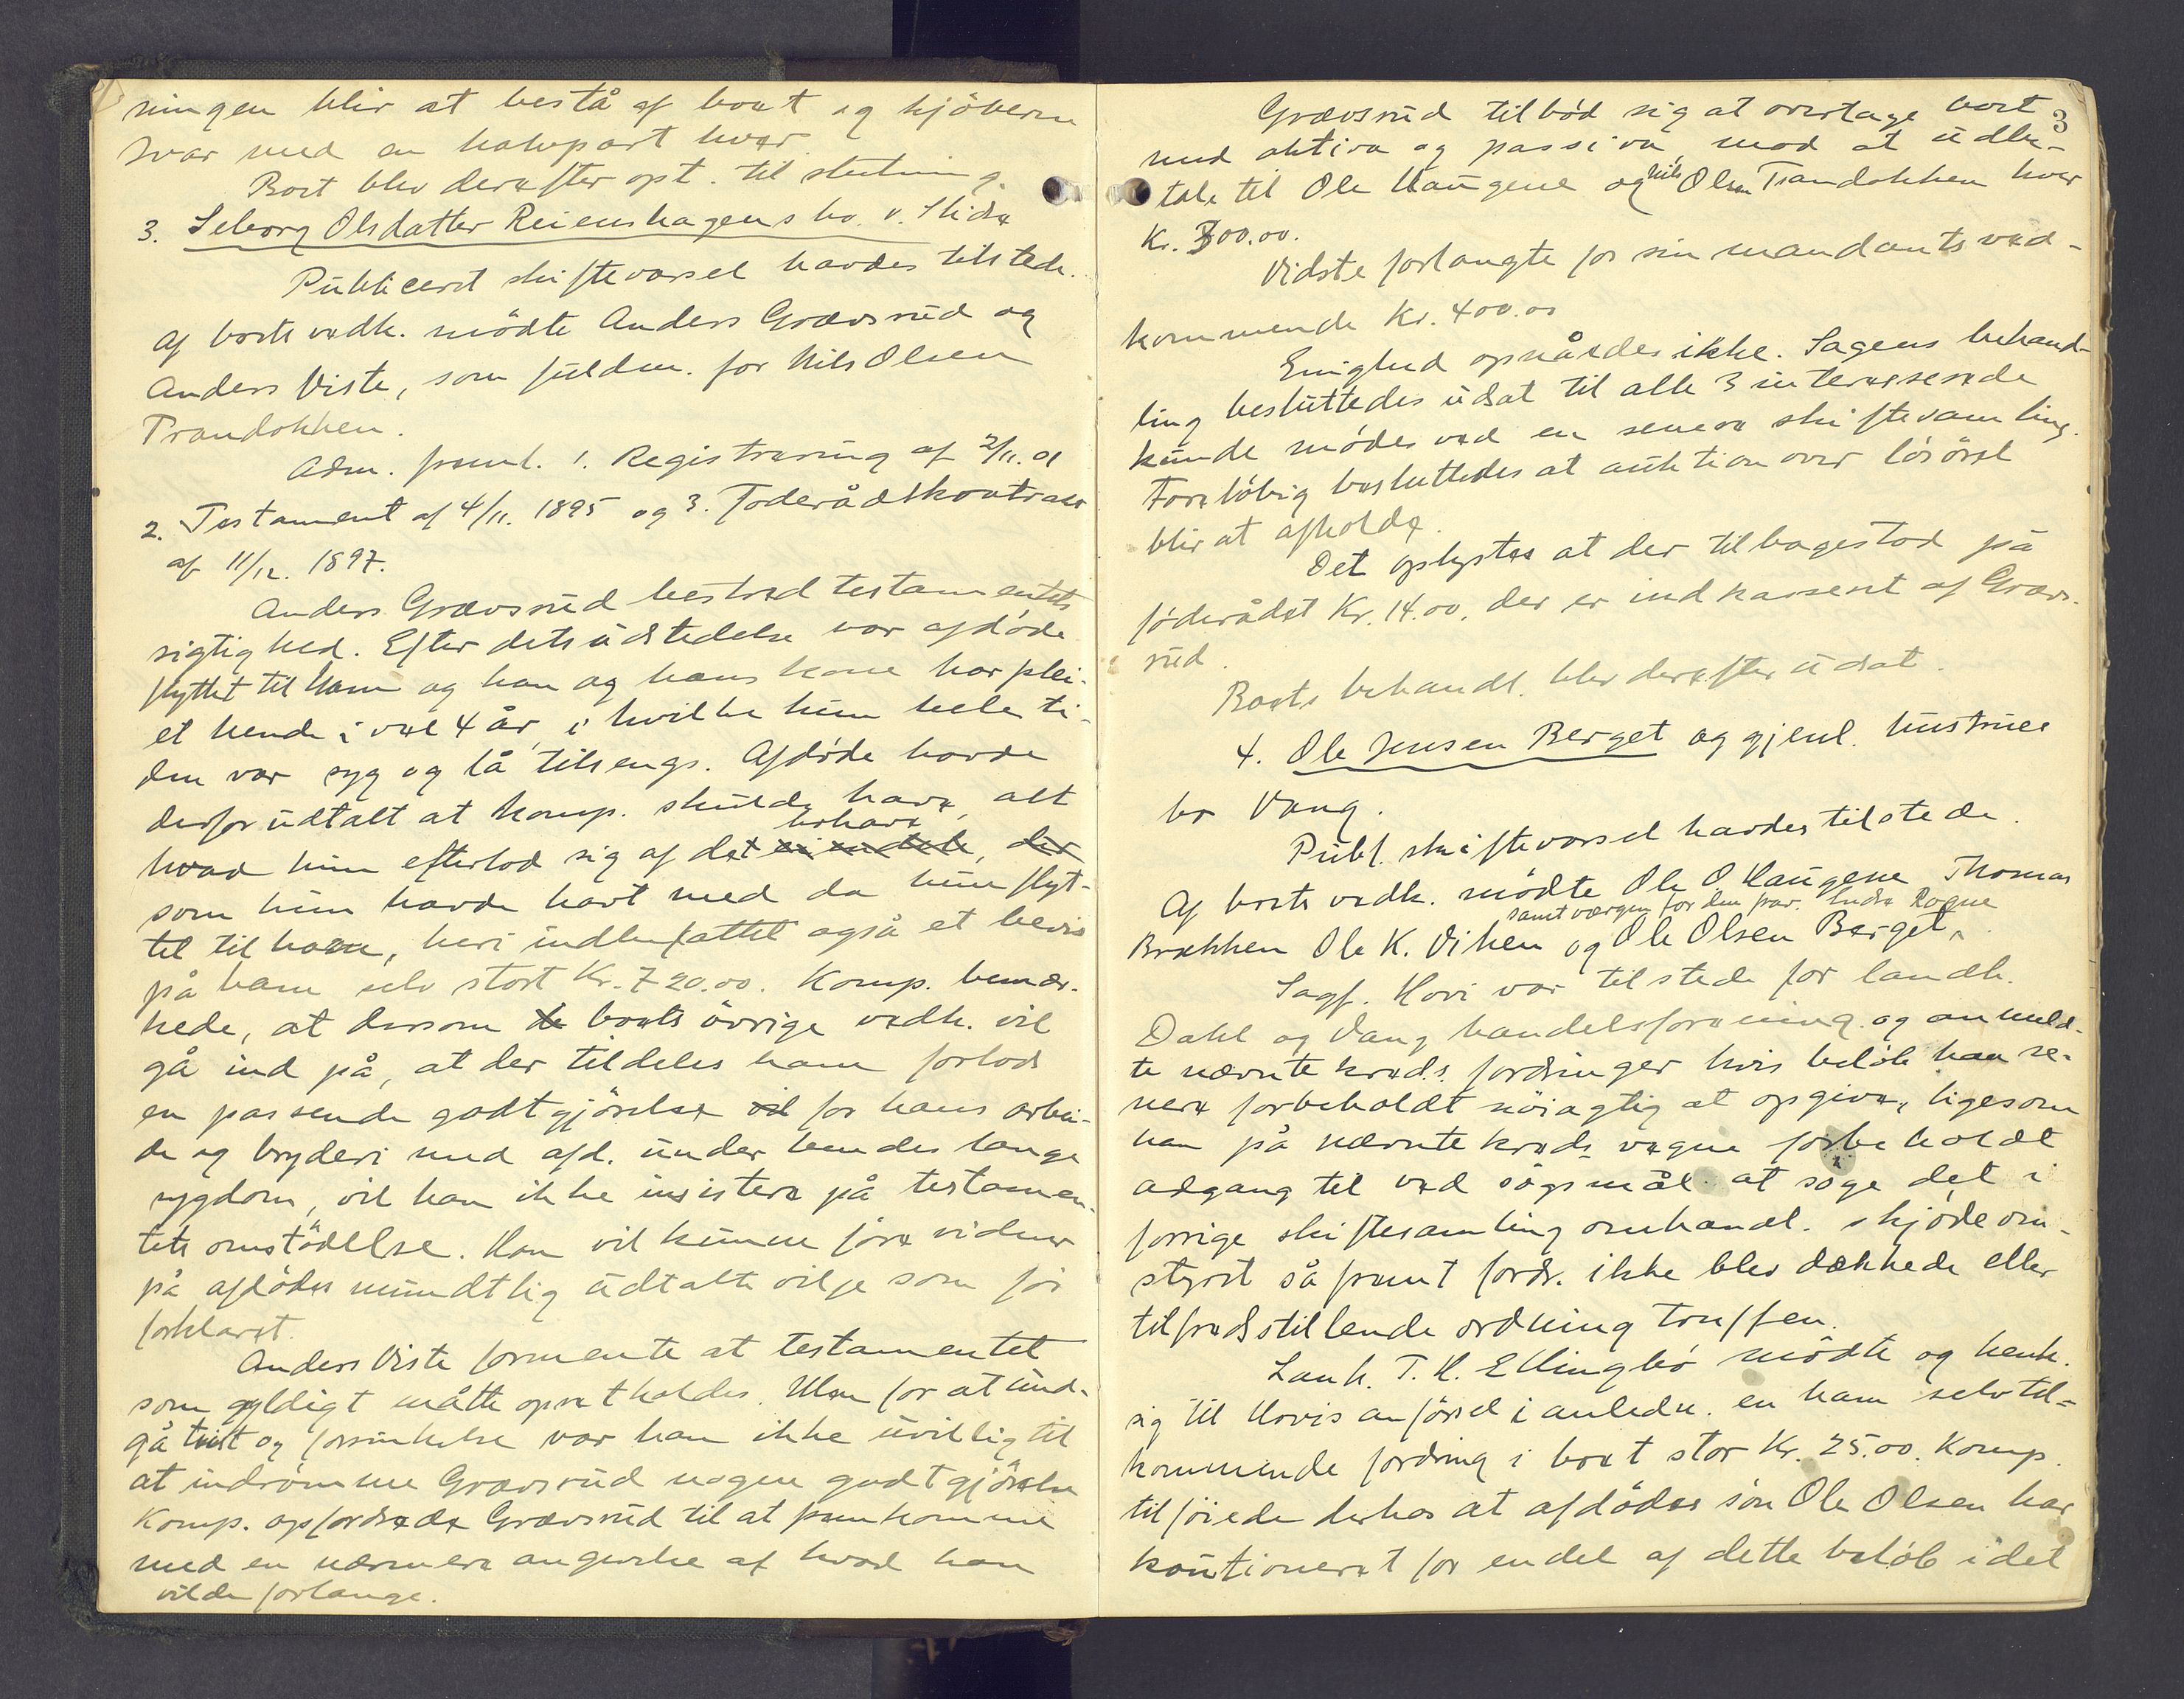 ningen blir at bestå af boet og kjöberen
svar med en halvpart hver.
Boet blev derefter opt. til slutning.
3. Seborg Olsdatter Reienshagens bo. v. Slidre
Publiceret skiftevarsel havdes tilstede.
Af boets vedk. mödte Anders Grævsrud og
Anders Viste, som fuldm. for Nils Olsen
Trandokken.
Adm. freml. 1. Registrering af 2/11. 01
2. Testament af 4/11. 1895 og 3. Föderådskontrakt
af 11/12. 1897.
Anders Grævsrud bestred testamentets
rigtighed. Efter dets udstedelse var afdöde
flyttet til ham og han og hans kone har plei-
et hende i vel 4 år, i hvilke hun hele ti-
den var syg og lå tilsengs. Afdöde havde
derfor udtalt at komp. skulde have alt
behave
hvad hun efterlod sig af det ei endele, der
som hun havde havt med da hun flyt-
tet til ham, heri indbefattet også et bevis
på ham selv stort Kr. 720.00. Komp. bemær-
kede, at dersom de boets övrige vedk. vil
gå ind på, at der tildeles ham forlods
en passende godtgjörelse vil for hans arbei-
de og bryderi med afd. under hendes lange
sygdom, vil han ikke insistere på testamen-
tets omstödelse. Han vil kunne före vidner
på afdödes mundtlig udtalte vilje som för
forklaret.
Anders Viste formente at testamentet
som gyldigt måtte opretholdes. Men for at und-
gå tvist og forsinkelse var han ikke uvillig til
at indrömme Grævsrud nogen godtgjörelse
Komp. opfordrede Grævsrud til at fremkomme
med en nærmere angivelse af hvad han
vilde forlange.
3
Grævsrud tilböd sig at overtage boet
med aktiva og passiva, mod at udbe-
tale til Ole Haugene og Nils Olsen Trandokken hver
Kr. 300.00.
Vidste forlangte for sin mandants ved-
kommende Kr. 400.00
Enighed opnåedes ikke. Sagens behand-
ling besluttedes udsat til alle 3 interesserede
kunde mödes ved en senere skiftesamling.
Forelöbig besluttedes at auktion over lösöret
blir at afholde.
Det oplystes at der tilbagestod på
föderådet Kr. 14.00, der er indkasseret af Grævs-
rud.
Boets behandl. blev derefter udsat.
4. Ole Jensen Berget og gjenl. hustrues
bo Vang.
Publ. skiftevarsel havdes tilstede.
Af boets vedk. mödte Ole O Haugene Thomas
samt værgen for den frav. Endre Rogne
Brækken Ole K. Viken og Ole Olsen Berget,
Sagf. Hovi var tilstede for landh.
Dahl og Vang handelsforening og anmeld-
te nævnte kreds. fordringer hvis belöb han se-
nere forbeholdt nöiagtig at opgive, ligesom
han på nævnte kreds vegne forbeholdt
adgang til ved sögsmål at söge det i
forrige skiftesamling omhandl. skjöde om-
styrt så fremt fordr. ikke blev dækkede eller
tilfredsstillende ordning truffen.
Lanh. T. H. Ellingbö mödte og henh.
sig til Hovis anförsel i anledn. en ham selv til-
kommende fordring i boet stor Kr. 25.00. Komp.
tilföiede derhos at afdödes sön Ole Olsen har
kautioneret for endel af dette belöb idet